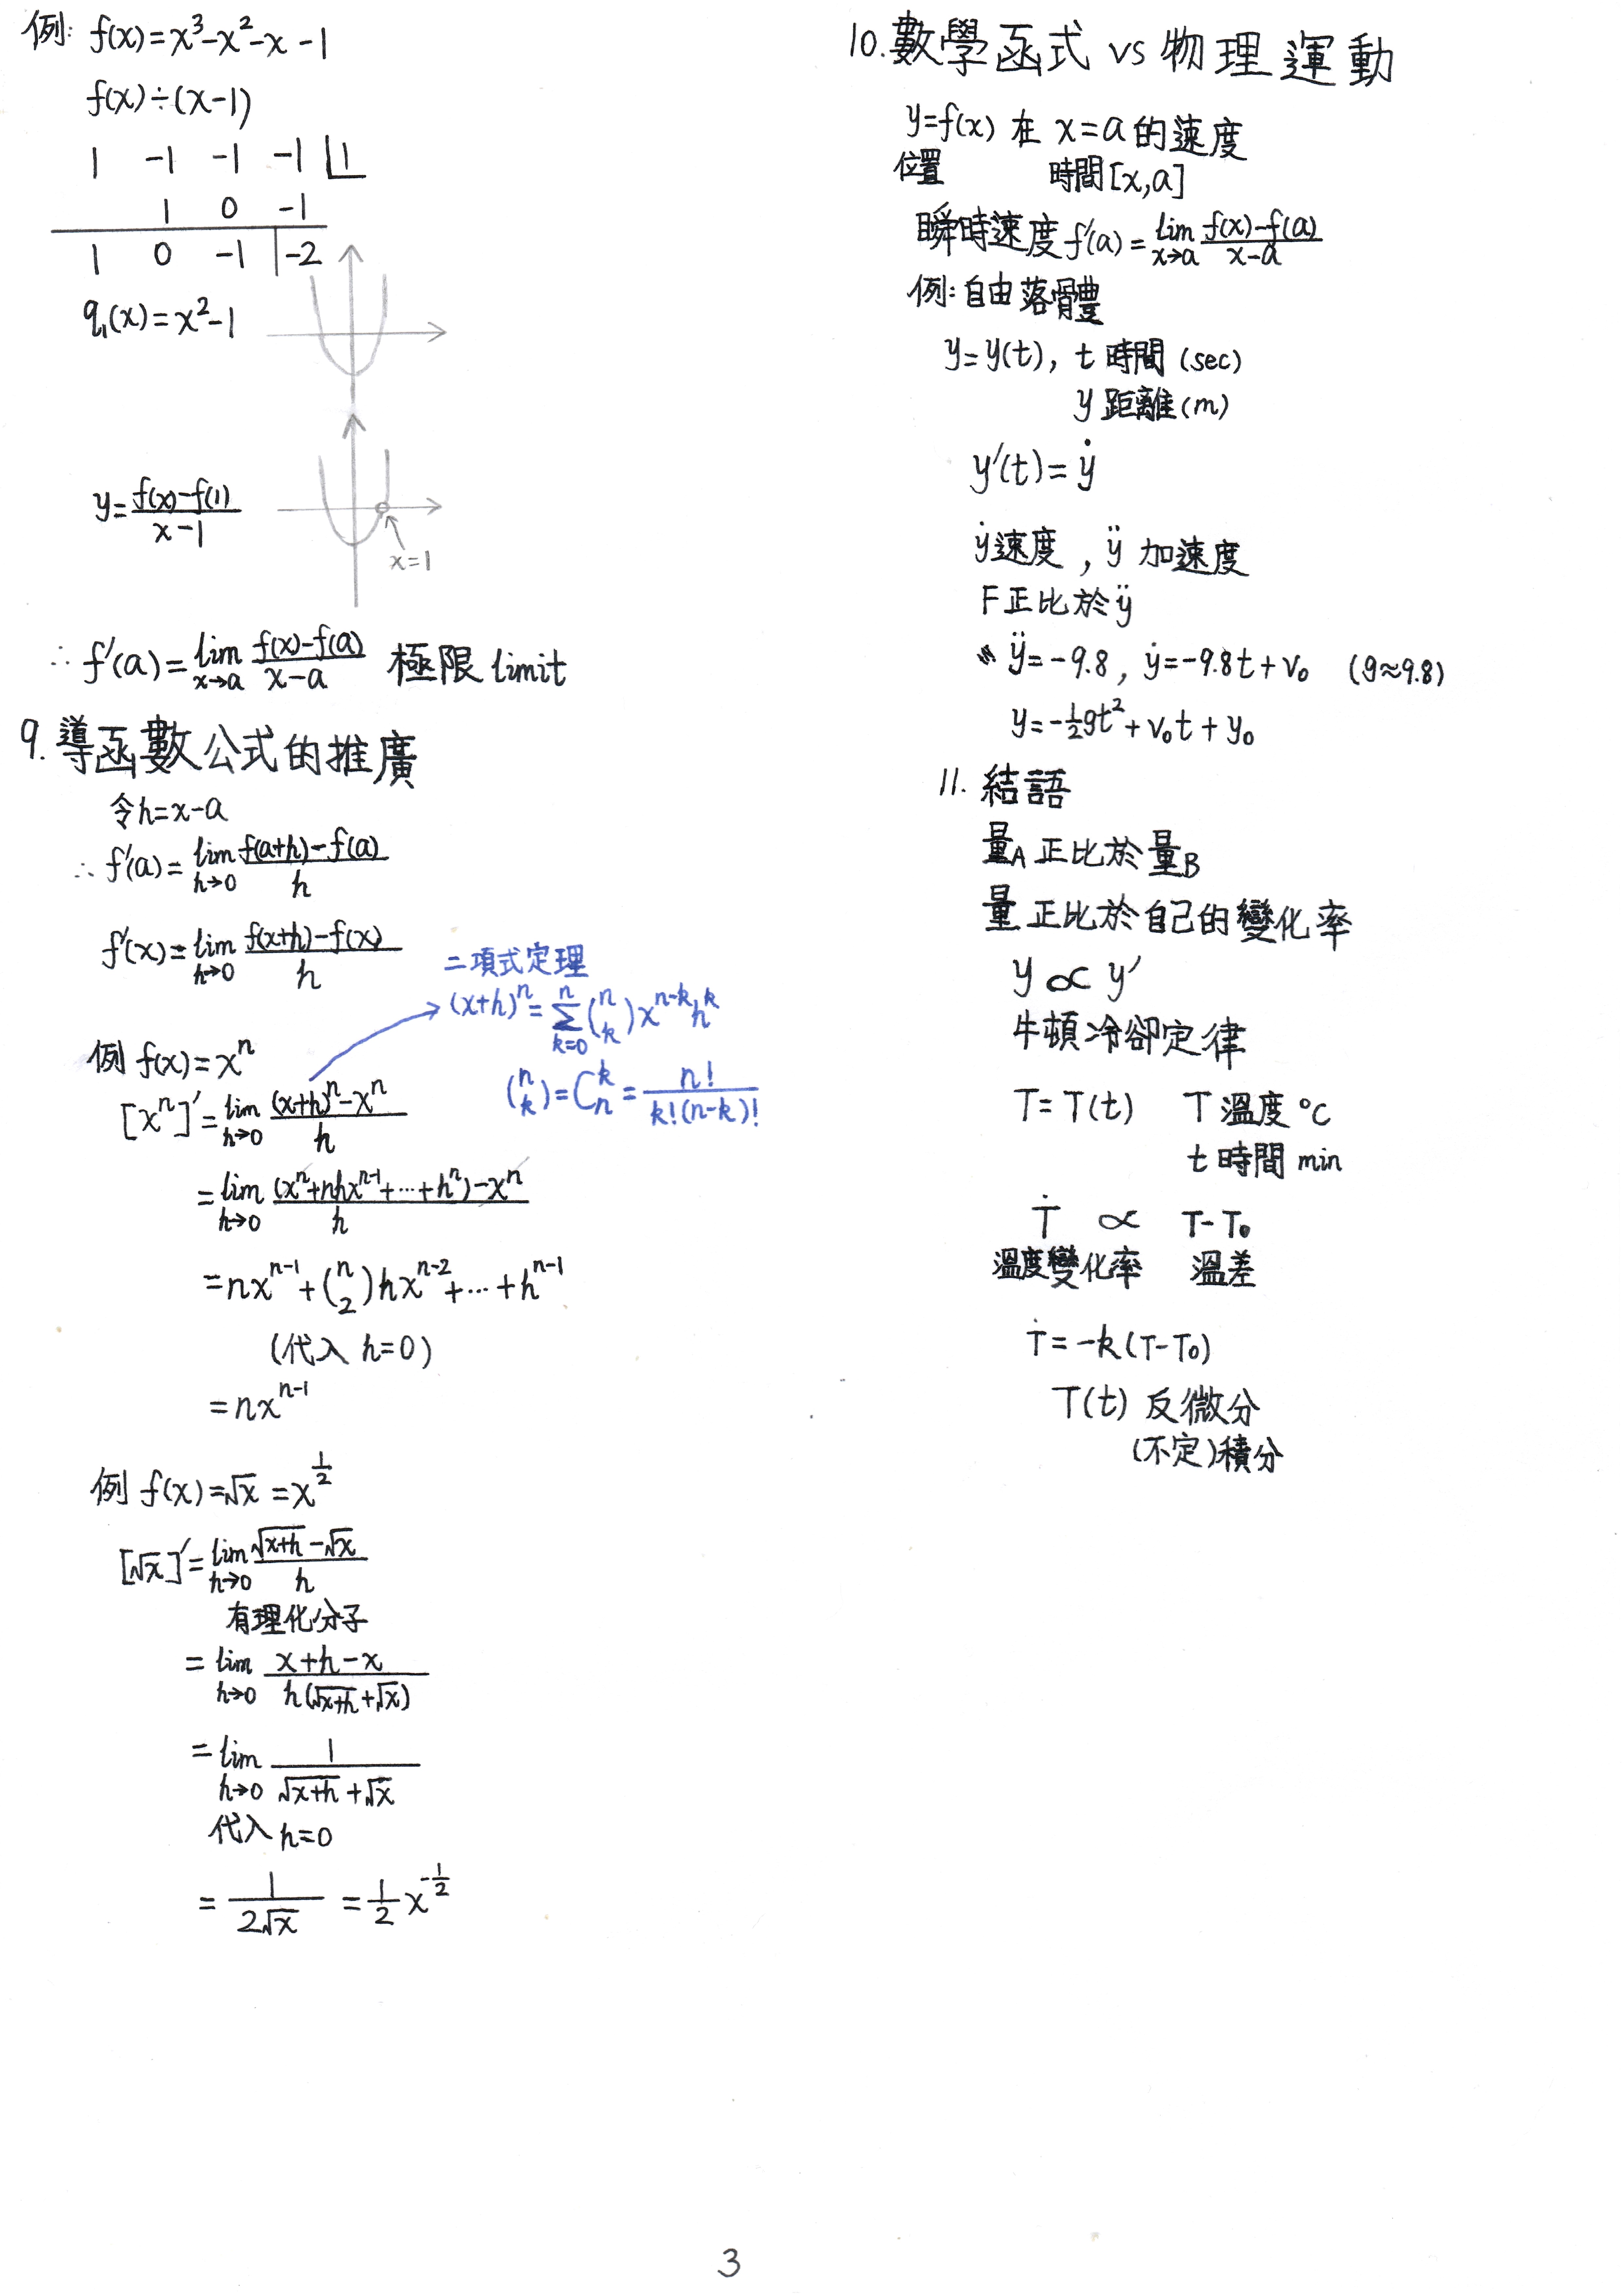 例: f(x)=x³-x²-x-1
f(x)÷(x-1)
1 -1 -1 -1 | 1
1 0 -1
1 0 -1 | -2
q₁(x)=x²-1
y=\frac{f(x)-f(1)}{x-1}
x=1
∴ f'(a)=\lim_{x→a}\frac{f(x)-f(a)}{x-a} 極限 limit
9. 導函數公式的推廣
令h=x-a
∴ f'(a)=\lim_{h→0}\frac{f(a+h)-f(a)}{h}
f'(x)=\lim_{h→0}\frac{f(x+h)-f(x)}{h}
二項式定理
(x+h)^n=\sum_{k=0}^{n}\binom{n}{k}x^{n-k}h^k
\binom{n}{k}=C_n^k=\frac{n!}{k!(n-k)!}
例 f(x)=x^n
[x^n]'=\lim_{h→0}\frac{(x+h)^n-x^n}{h}
=\lim_{h→0}\frac{(x^n+nhx^{n-1}+⋯+h^n)-x^n}{h}
=nx^{n-1}+\binom{n}{2}hx^{n-2}+⋯+h^{n-1}
(代入 h=0)
=nx^{n-1}
例 f(x)=√x=x^{\frac{1}{2}}
[√x]'=\lim_{h→0}\frac{\sqrt{x+h}-\sqrt{x}}{h}
有理化分子
=\lim_{h→0}\frac{x+h-x}{h(\sqrt{x+h}+\sqrt{x})}
=\lim_{h→0}\frac{1}{\sqrt{x+h}+\sqrt{x}}
代入 h=0
=\frac{1}{2\sqrt{x}}=\frac{1}{2}x^{-\frac{1}{2}}
10. 數學函式 vs 物理運動
y=f(x) 在 x=a 的速度
位置 時間[x,a]
瞬時速度 f'(a)=\lim_{x→a}\frac{f(x)-f(a)}{x-a}
例: 自由落體
y=y(t), t 時間 (sec)
y 距離 (m)
y'(t)=ẏ
ẏ 速度, ÿ 加速度
F 正比於 ÿ
ÿ=-9.8, ẏ=-9.8t+v₀ (g≈9.8)
y=-\frac{1}{2}gt²+v₀t+y₀
11. 結語
量A 正比於 量B
量 正比於 自己的變化率
y ∝ y'
牛頓冷卻定律
T=T(t) T 溫度 °C
t 時間 min
Ṫ ∝ T-T₀
溫度變化率 溫差
Ṫ=-k(T-T₀)
T(t) 反微分
(不定)積分
3